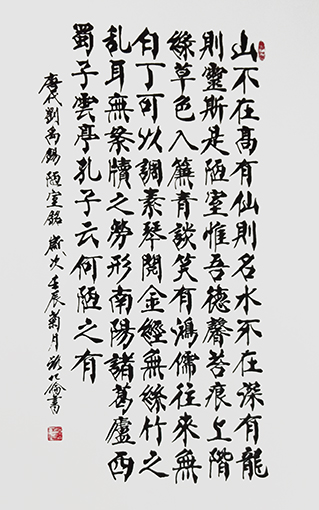 山不在高有仙則名水不在深有龍
則靈斯是陋室惟吾德馨苔痕上階
綠草色入簾青談笑有鴻儒往來無
白丁可以調素琴閱金經無絲竹之
亂耳無案牘之勞形南陽諸葛廬西
蜀子雲亭孔子云何陋之有
唐代劉禹錫陋室銘歲次壬辰菊月書